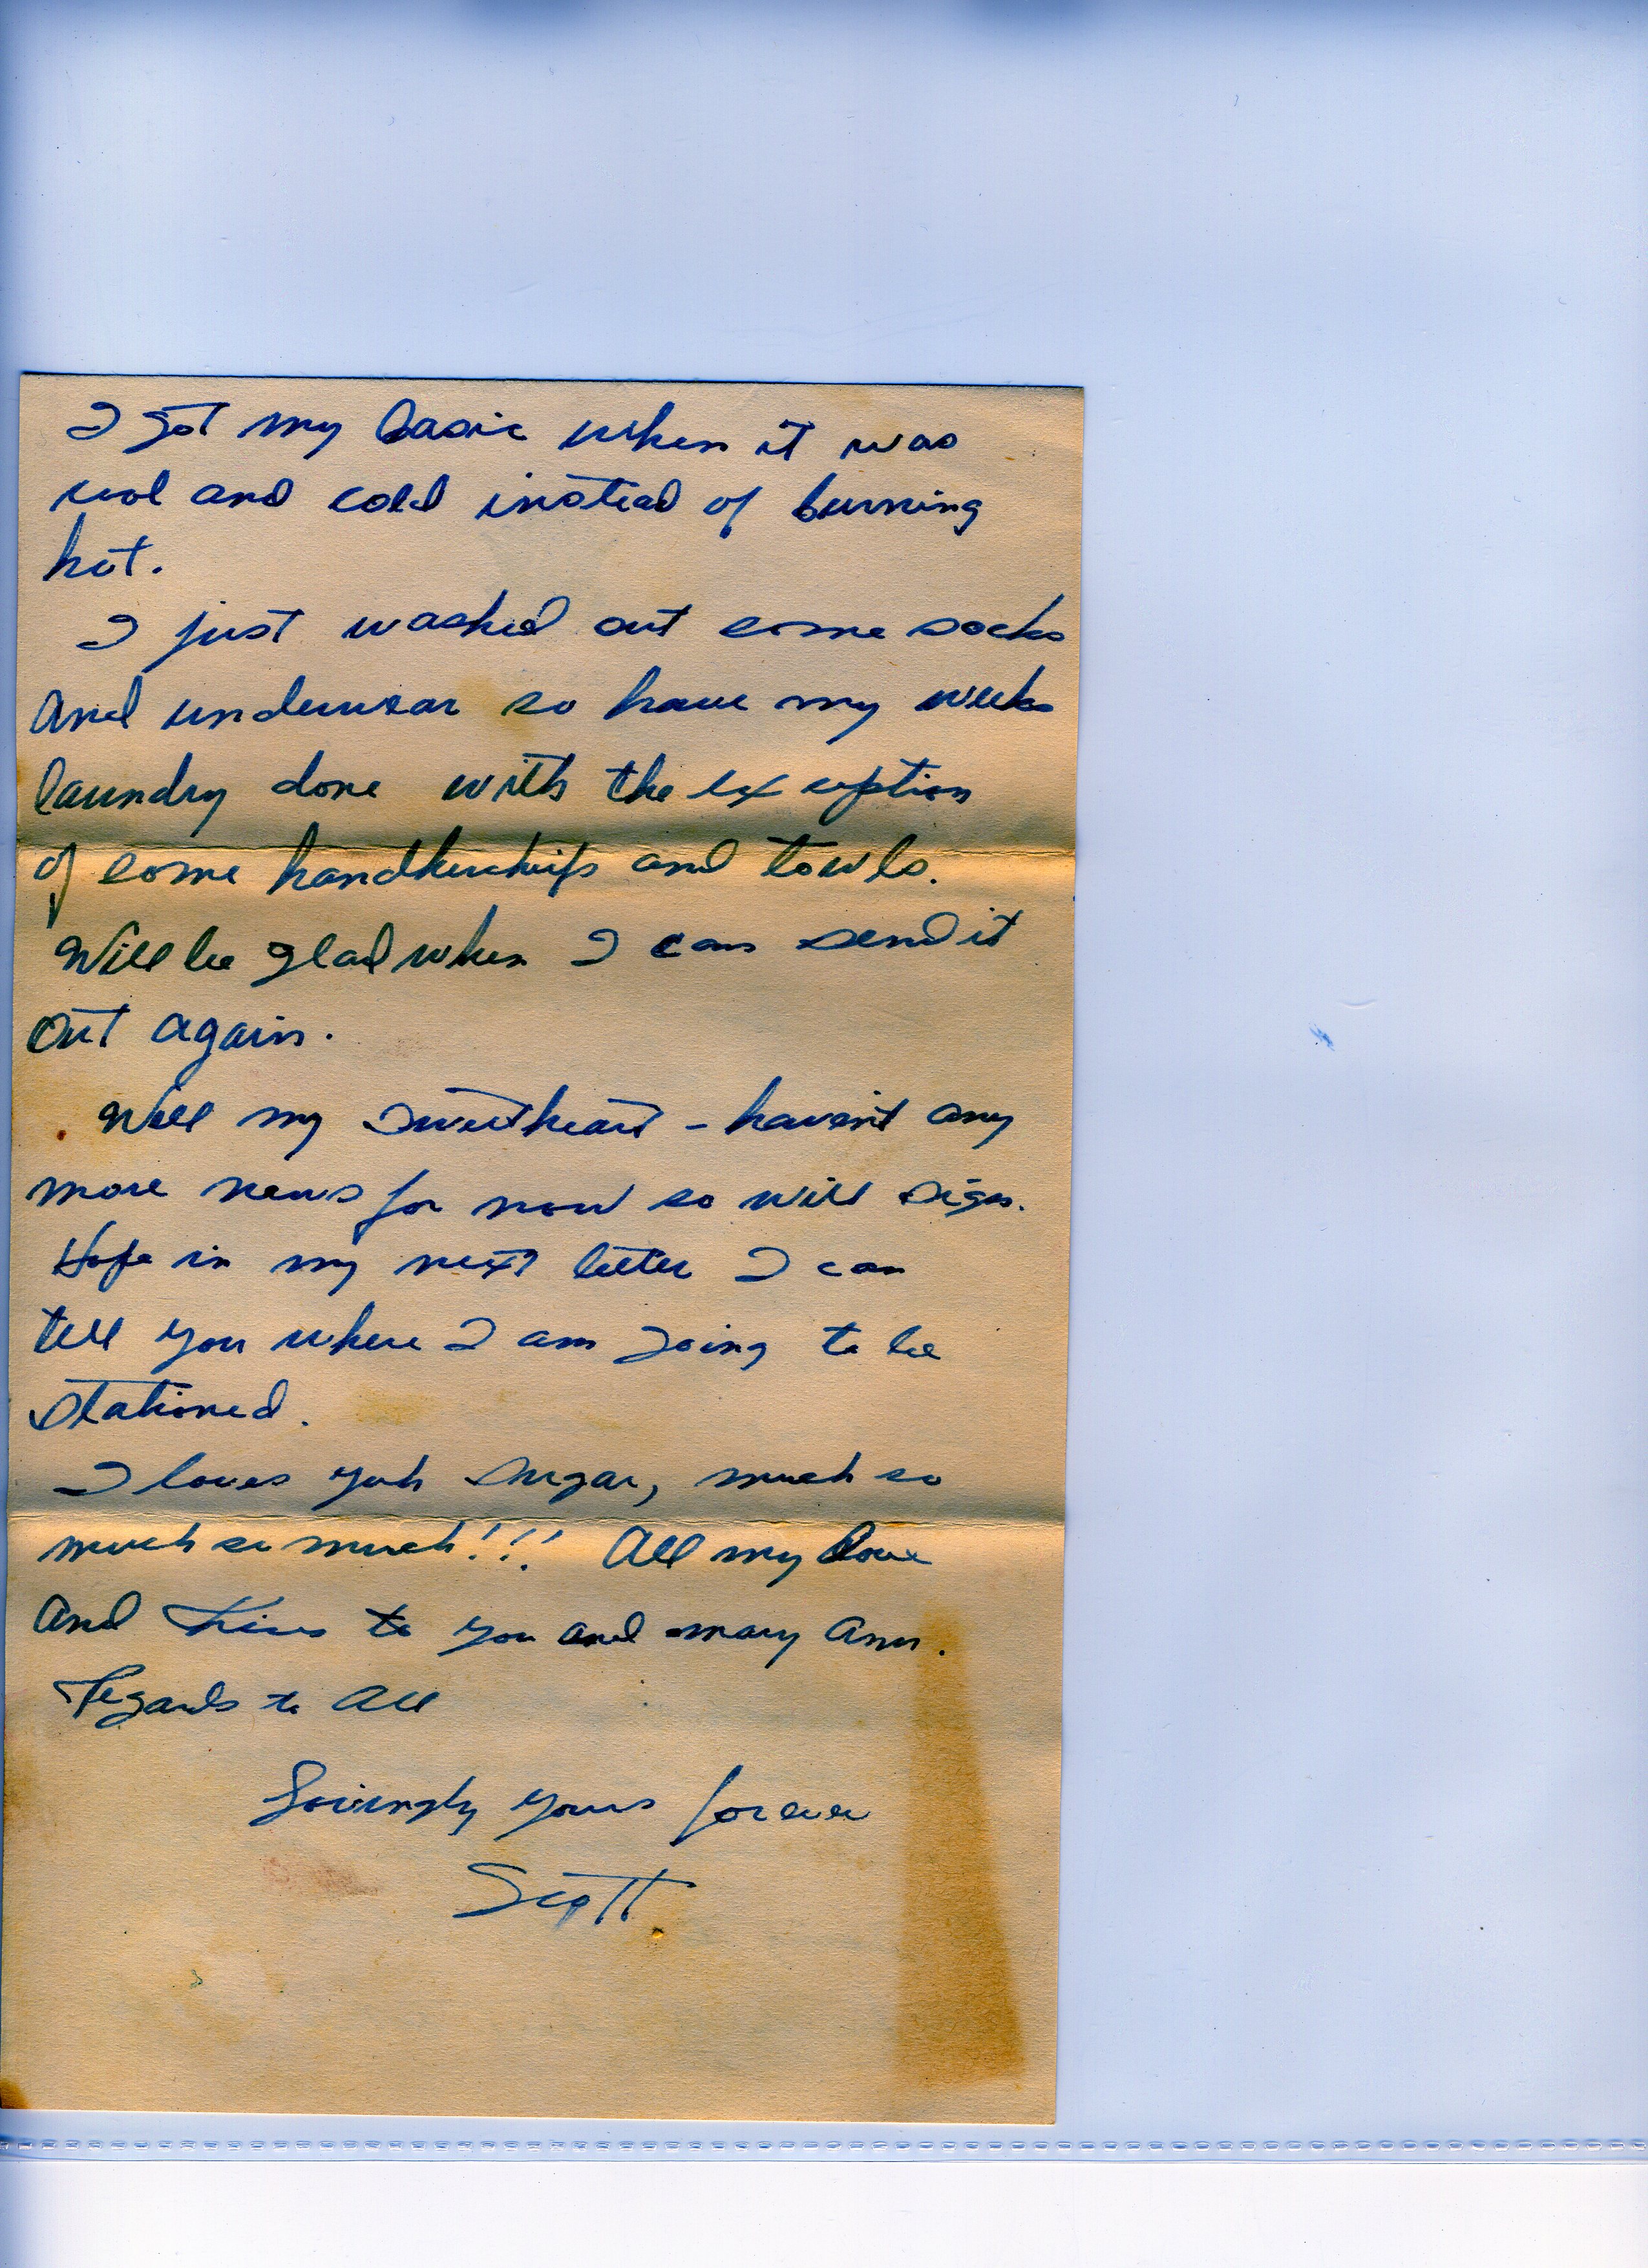 I got my basic when it was
cool and cold instead of burning
hot.
I just washed out some socks
and underwear so have my weeks
laundry done with the exception
of some handkerchiefs and towls.
Will be glad when I can send it
out again.
Well my Sweetheart - havent any
more news for now so will sign.
Hope in my next letter I can
tell you where I am going to be
stationed.
I loves yuh Sugar, much so
much so much!!! All my love
and Kisses to you and Mary Ann.
Regards to All
Lovingly yours forever
Scott